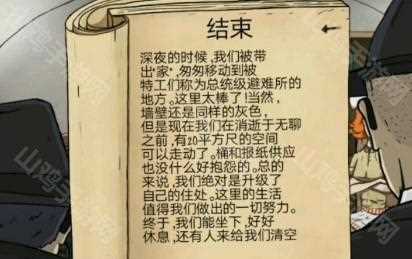 结束
深夜的时候,我们被带
出"家",匆匆移动到被
特工们称为总统级避难所的
地方。这里太棒了!当然,
墙壁还是同样的灰色,
但是现在我们在消逝于无聊
之前,有20平方尺的空间
可以走动了。桶和报纸供应
也没什么好抱怨的。总的
来说,我们绝对是升级了
自己的住处。这里的生活
值得我们做出的一切努力。
终于,我们能坐下,好好
休息,还有人来给我们清空